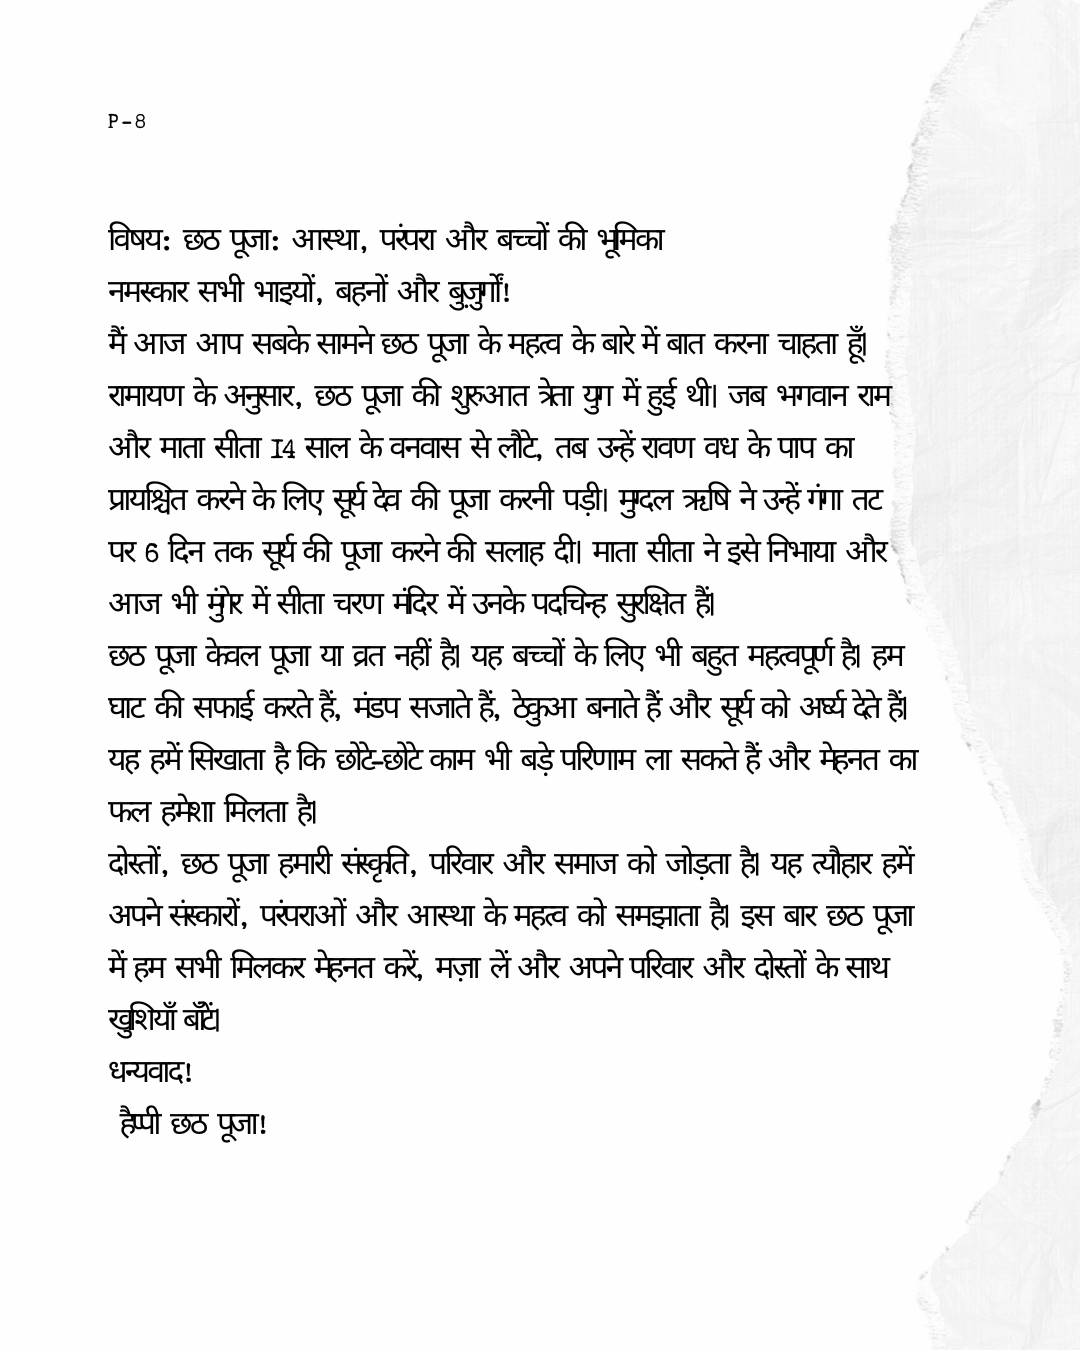 P-8
विषय: छठ पूजा: आस्था, परंपरा और बच्चों की भूमिका
नमस्कार सभी भाइयों, बहनों और बुज़ुर्गों!
मैं आज आप सबके सामने छठ पूजा के महत्व के बारे में बात करना चाहता हूँ।
रामायण के अनुसार, छठ पूजा की शुरुआत त्रेता युग में हुई थी। जब भगवान राम
और माता सीता 14 साल के वनवास से लौटे, तब उन्हें रावण वध के पाप का
प्रायश्चित करने के लिए सूर्य देव की पूजा करनी पड़ी। मुग्दल ऋषि ने उन्हें गंगा तट
पर 6 दिन तक सूर्य की पूजा करने की सलाह दी। माता सीता ने इसे निभाया और
आज भी मुंगेर में सीता चरण मंदिर में उनके पदचिन्ह सुरक्षित हैं।
छठ पूजा केवल पूजा या व्रत नहीं है। यह बच्चों के लिए भी बहुत महत्वपूर्ण है। हम
घाट की सफाई करते हैं, मंडप सजाते हैं, ठेकुआ बनाते हैं और सूर्य को अर्घ्य देते हैं।
यह हमें सिखाता है कि छोटे-छोटे काम भी बड़े परिणाम ला सकते हैं और मेहनत का
फल हमेशा मिलता है।
दोस्तों, छठ पूजा हमारी संस्कृति, परिवार और समाज को जोड़ता है। यह त्यौहार हमें
अपने संस्कारों, परंपराओं और आस्था के महत्व को समझाता है। इस बार छठ पूजा
में हम सभी मिलकर मेहनत करें, मज़ा लें और अपने परिवार और दोस्तों के साथ
खुशियाँ बाँटें।
धन्यवाद!
हैप्पी छठ पूजा!